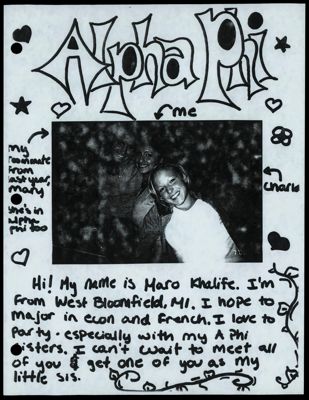 Alpha Phi
me
my
roommate
from
last year,
mary
she's in
alpha
phi too
Charla
Hi! My name is Maro Khalife. I'm
from West Bloomfield, MI. I hope to
major in econ and French. I love to
Party - especially with my A Phi
sisters. I can't wait to meet all
of you & get one of you as my
little sis.